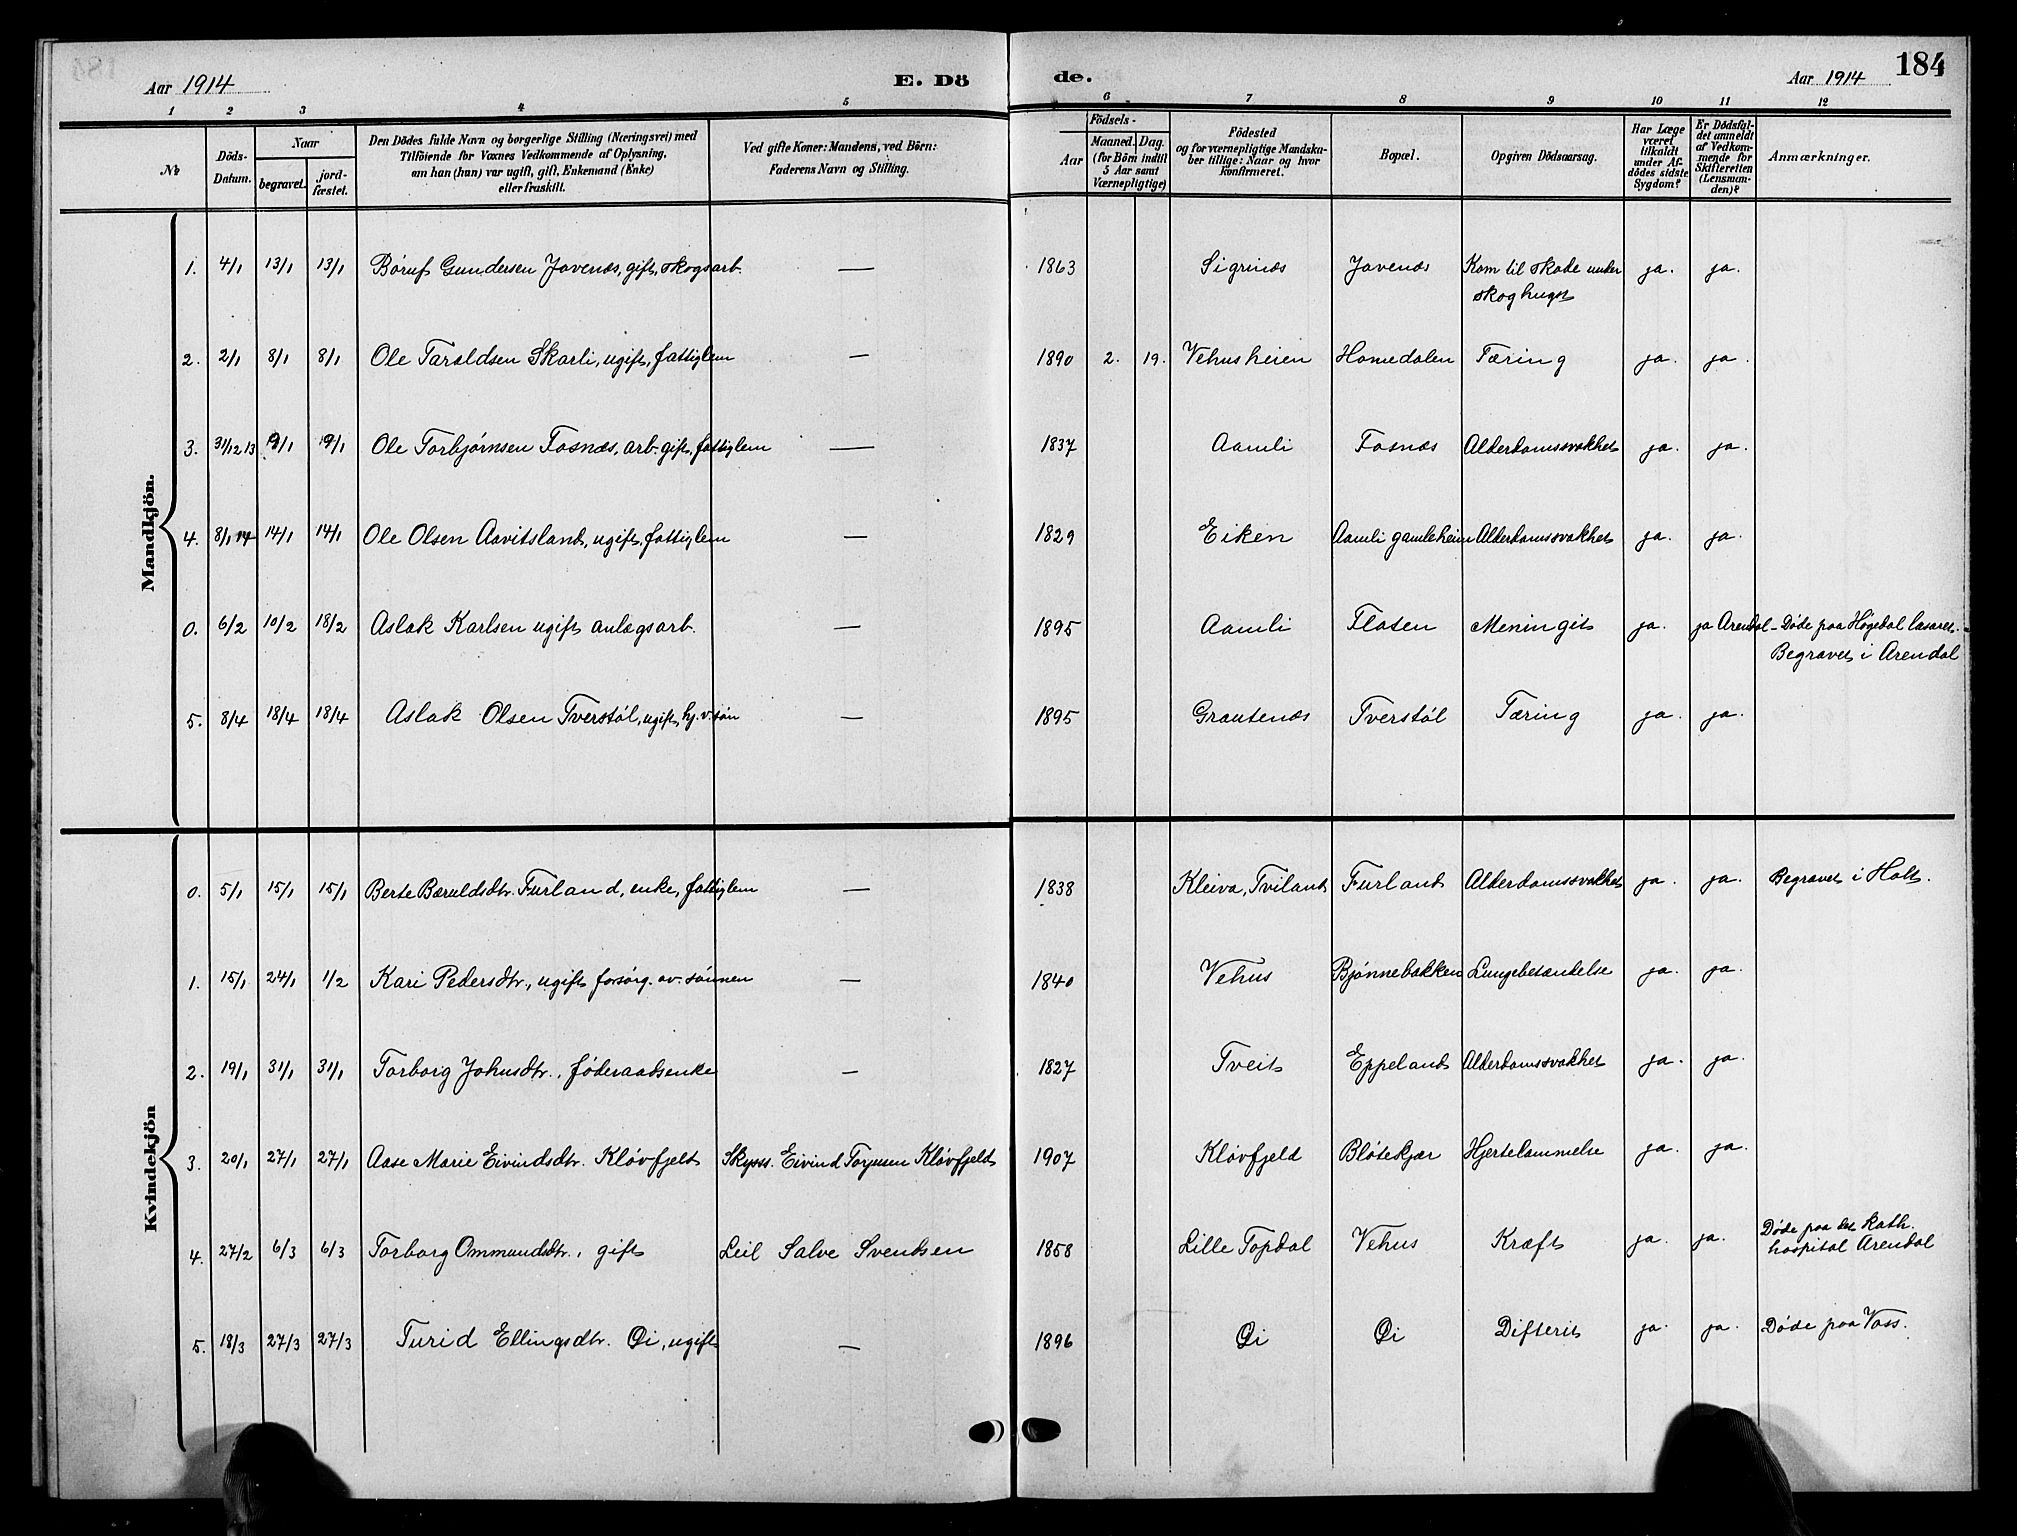 184
Aar 1914 E. Dö de. Aar 1914
1 2 3 4 5 6 7 8 9 10 11 12
№
Döds-Datum.
Naar
begravet.
jord-fæstet.
Den Dödes fulde Navn og borgerlige Stilling (Næringsvei) med
Tilföiende for Voxnes Vedkommende af Oplysning,
om han (hun) var ugift, gift, Enkemand (Enke)
eller fraskilt.
Ved gifte Koner: Mandens, ved Börn:
Faderens Navn og Stilling.
Födsels-
Aar
Maaned. Dag.
(for Börn indtil
5 Aar samt
Værnepligtige)
Födested
og for værnepligtige Mandska-
ber tillige: Naar og hvor
konfirmeret.
Bopæl.
Opgiven Dödsaarsag.
Har Læge
været
tilkaldt
under Af-
dödes sidste
Sygdom?
Er Dödsfal-
det anmeldt
af Vedkom-
mende for
Skifteretten
(Lensman-
den)?
Anmærkninger.
Mandkjön.
1. 4/1 13/1 13/1 Børuf Gundersen Jovenæs, gift, skogsarb. — 1863 Sigrinæs Jovenæs Kom til skade under ja. ja.
skoghugst
2. 2/1 8/1 8/1 Ole Taraldsen Skarli, ugift, fattiglem — 1890 2. 19. Vehusheien Homedalen Tæring ja. ja.
3. 31/12 13 9/1 19/1 Ole Torbjørnsen Fosnæs, arb. gift, fattiglem — 1837 Aamli Fosnæs Alderdomssvakhet ja. ja.
4. 8/1 14 14/1 14/1 Ole Olsen Aavitsland, ugift, fattiglem — 1829 Eiken Aamli gamleheim Alderdomssvakhet ja. ja.
0. 6/2 10/2 18/2 Aslak Karlsen ugift anlægsarb. — 1895 Aamli Flaten Meningit ja. ja Arendal – Døde paa Høgedal lasaret.
Begravet i Arendal
5. 8/4 18/4 18/4 Aslak Olsen Tverstøl, ugift, hj.v. søn — 1895 Grautenæs Tverstøl Tæring ja. ja.
Kvindekjön
0. 5/1 15/1 15/1 Berte Bæruldsdtr. Furland, enke, fattiglem — 1838 Kleiva, Tviland Furland Alderdomssvakhet ja. ja. Begravet i Holt.
1. 15/1 24/1 1/2 Kari Pedersdtr., ugift forsørg. av. sønnen — 1840 Vehus Bjønnebakken Lungebetændelse ja. ja.
2. 19/1 31/1 31/1 Torborg Johusdtr., føderaadsenke — 1827 Tveit Eppeland Alderdomssvakhet ja. ja.
3. 20/1 27/1 27/1 Aase Marie Eivindsdtr. Kløvfjeld Skyss. Eivind Torjusen Kløvfjeld 1907 Kløvfjeld Bløtekjær Hjertelammelse ja. ja.
4. 27/2 6/3 6/3 Torborg Ommundsdtr., gift Leil Salve Svenksen 1858 Lille Topdal Vehus Kræft ja. ja. Døde paa det kath.
hospital Arendal
5. 18/3 27/3 27/3 Turid Ellingsdtr. Øi, ugift — 1896 Øi Øi Difterit ja. ja. Døde paa Voss.